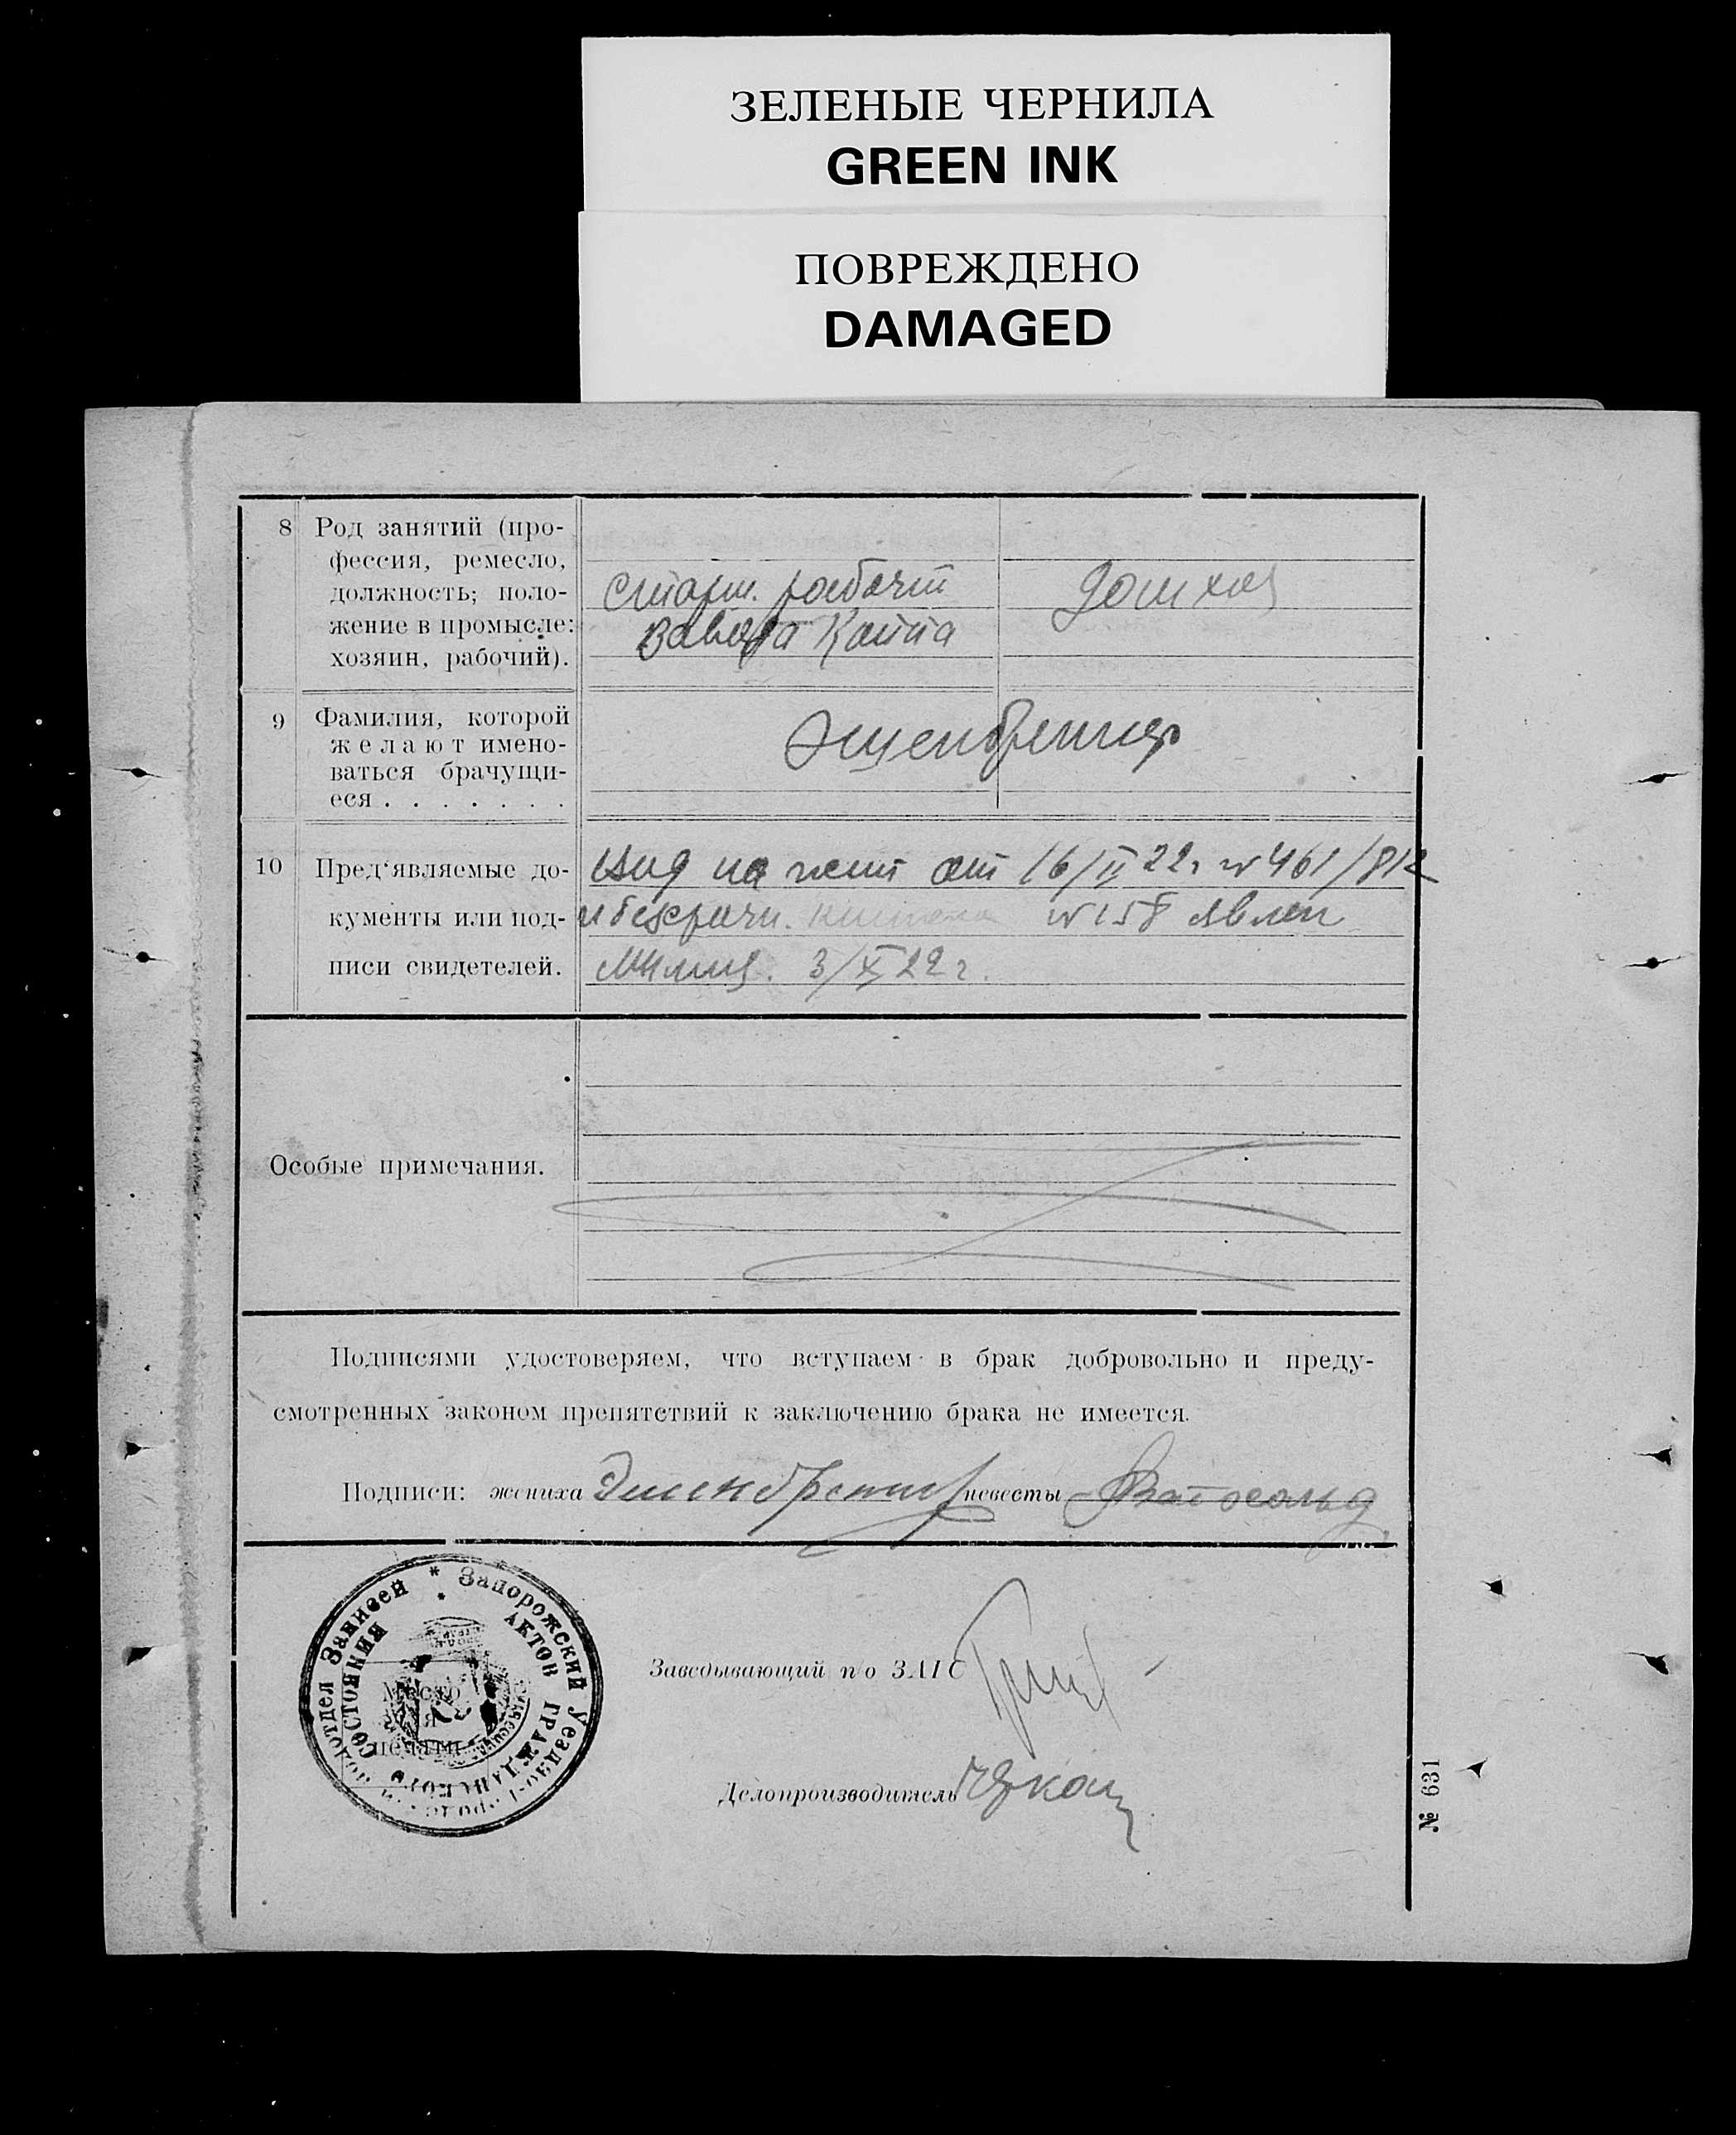 ЗЕЛЕНЫЕ ЧЕРНИЛА
GREEN INK
ПОВРЕЖДЕНО
DAMAGED
8 Род занятий (про-
фессия, ремесло,
должность; поло-
жение в промысле:
хозяин, рабочий).
старш. рабочий
завода
домхоз
9 Фамилия, которой
желают имено-
ваться брачущи-
еся . . . . . . .
10 Пред'являемые до-
кументы или под-
писи свидетелей.
вид на жит от 16/II 22г №461/812
и безбрачн. №158
милиц. 3/X 22г.
Особые примечания.
Подписями удостоверяем, что вступаем в брак добровольно и преду-
смотренных законом препятствий к заключению брака не имеется.
Подписи: жениха невесты
* Запорожский Уездно-
подотдел Записей
АКТОВ ГРАЖДАНСКОГО СОСТОЯНИЯ
Место
для
печати
Заведывающий по ЗАГС
Делопроизводитель
№ 631